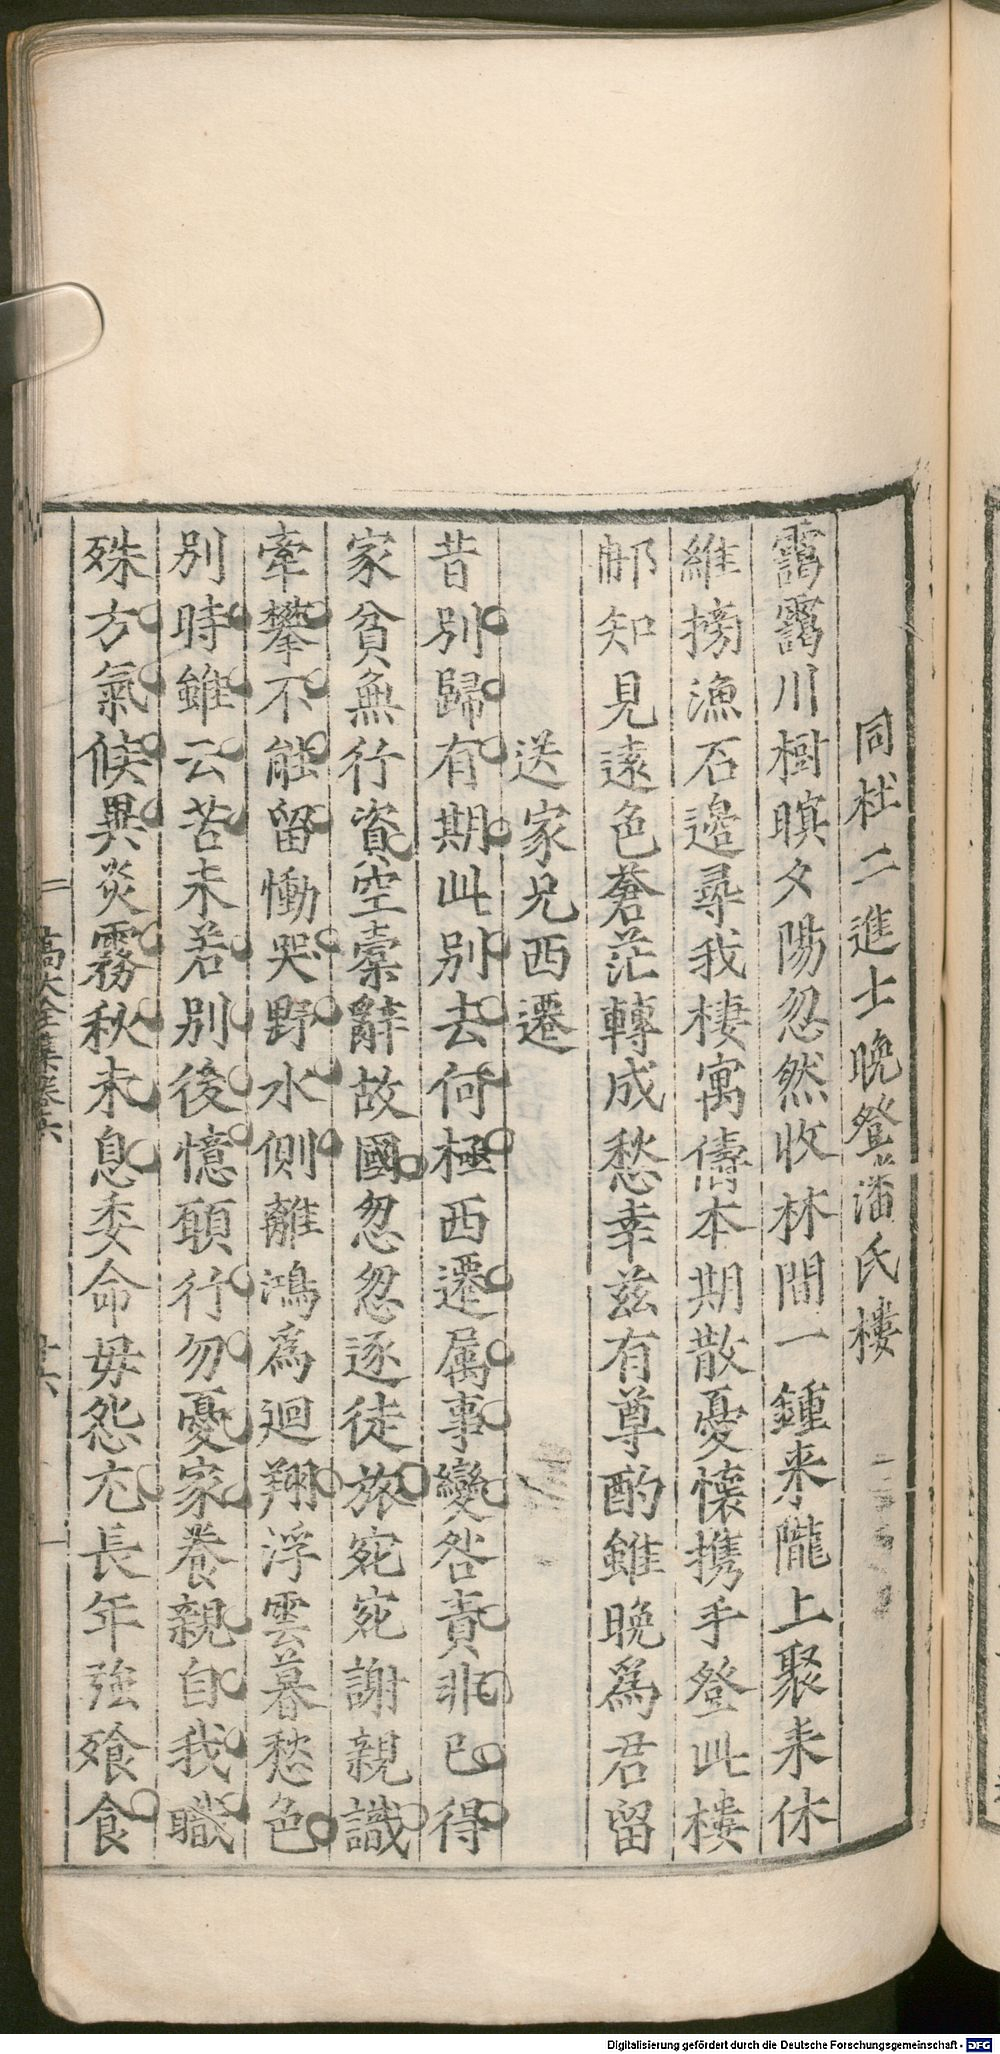 同杜二進士晚登潘氏樓
靄靄川樹暝夕陽忽然收林間一鍾来隴上聚耒休
維搒漁石邉尋我棲寓儔本期散憂懷携手登此樓
郍知見遠色蒼茫轉成愁幸兹有尊酌雖晚為君留
送家兄西遷
昔別歸有期此別去何極西遷属事變咎責非已得
家貧無行資空橐辭故國忽忽逐徒旅宛宛謝親識
牽攀不能留慟哭野水側離鴻為迴翔浮雲暮愁色
別時雖云苦未若別後憶願行勿憂家養親自我職
殊方氣候異炎霧秋未息委命毋怨尤長年強飱食
高大全集卷六
廿六
Digitalisierung gefördert durch die Deutsche Forschungsgemeinschaft - DFG